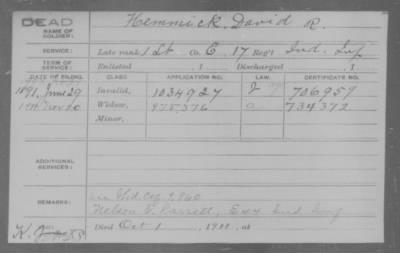 DEAD
NAME OF SOLDIER: Hemmick, David R.
SERVICE: Late rank, 1 Lt Co. C, 17 Reg't Ind. Inf
TERM OF SERVICE: Enlisted , 1 Discharged , 1
DATE OF FILING. CLASS. APPLICATION NO. LAW. CERTIFICATE NO.
1891, June 29 Invalid, 1034927 706959
1911 Nov 20 Widow, 975,376 a 734,372
Minor,
ADDITIONAL SERVICES:
REMARKS:
Died Oct 1, 1911, at